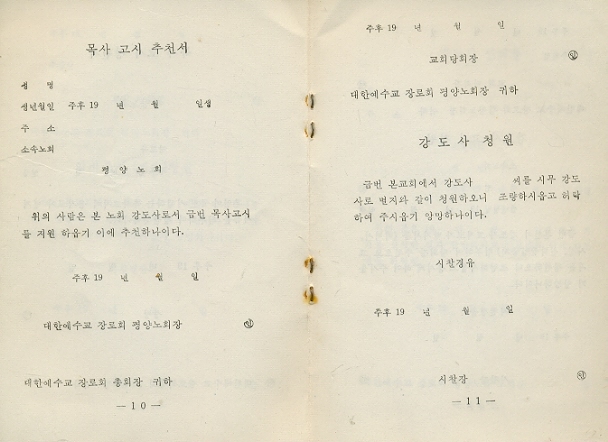 목사 고시 추천서
성 명
생년월일 주후 19 년 월 일생
주 소
소속노회
평 양 노 회
위의 사람은 본 노회 강도사로서 금번 목사고시
를 지원 하옵기 이에 추천하나이다.
주후 19 년 월 일
대한예수교 장로회 평양노회장 ㊞
대한예수교 장로회 총회장 귀하
— 1 0 —
주후 19 년 월 일
교회당회장 ㊞
대한예수교 장로회 평양노회장 귀하
강 도 사 청 원
금번 본교회에서 강도사 씨를 시무 강도
사로 별지와 같이 청원하오니 조량하시옵고 허락
하여 주시옵기 앙망하나이다.
시찰경유
주후 19 년 월 일
시찰장 ㊞
— 1 1 —